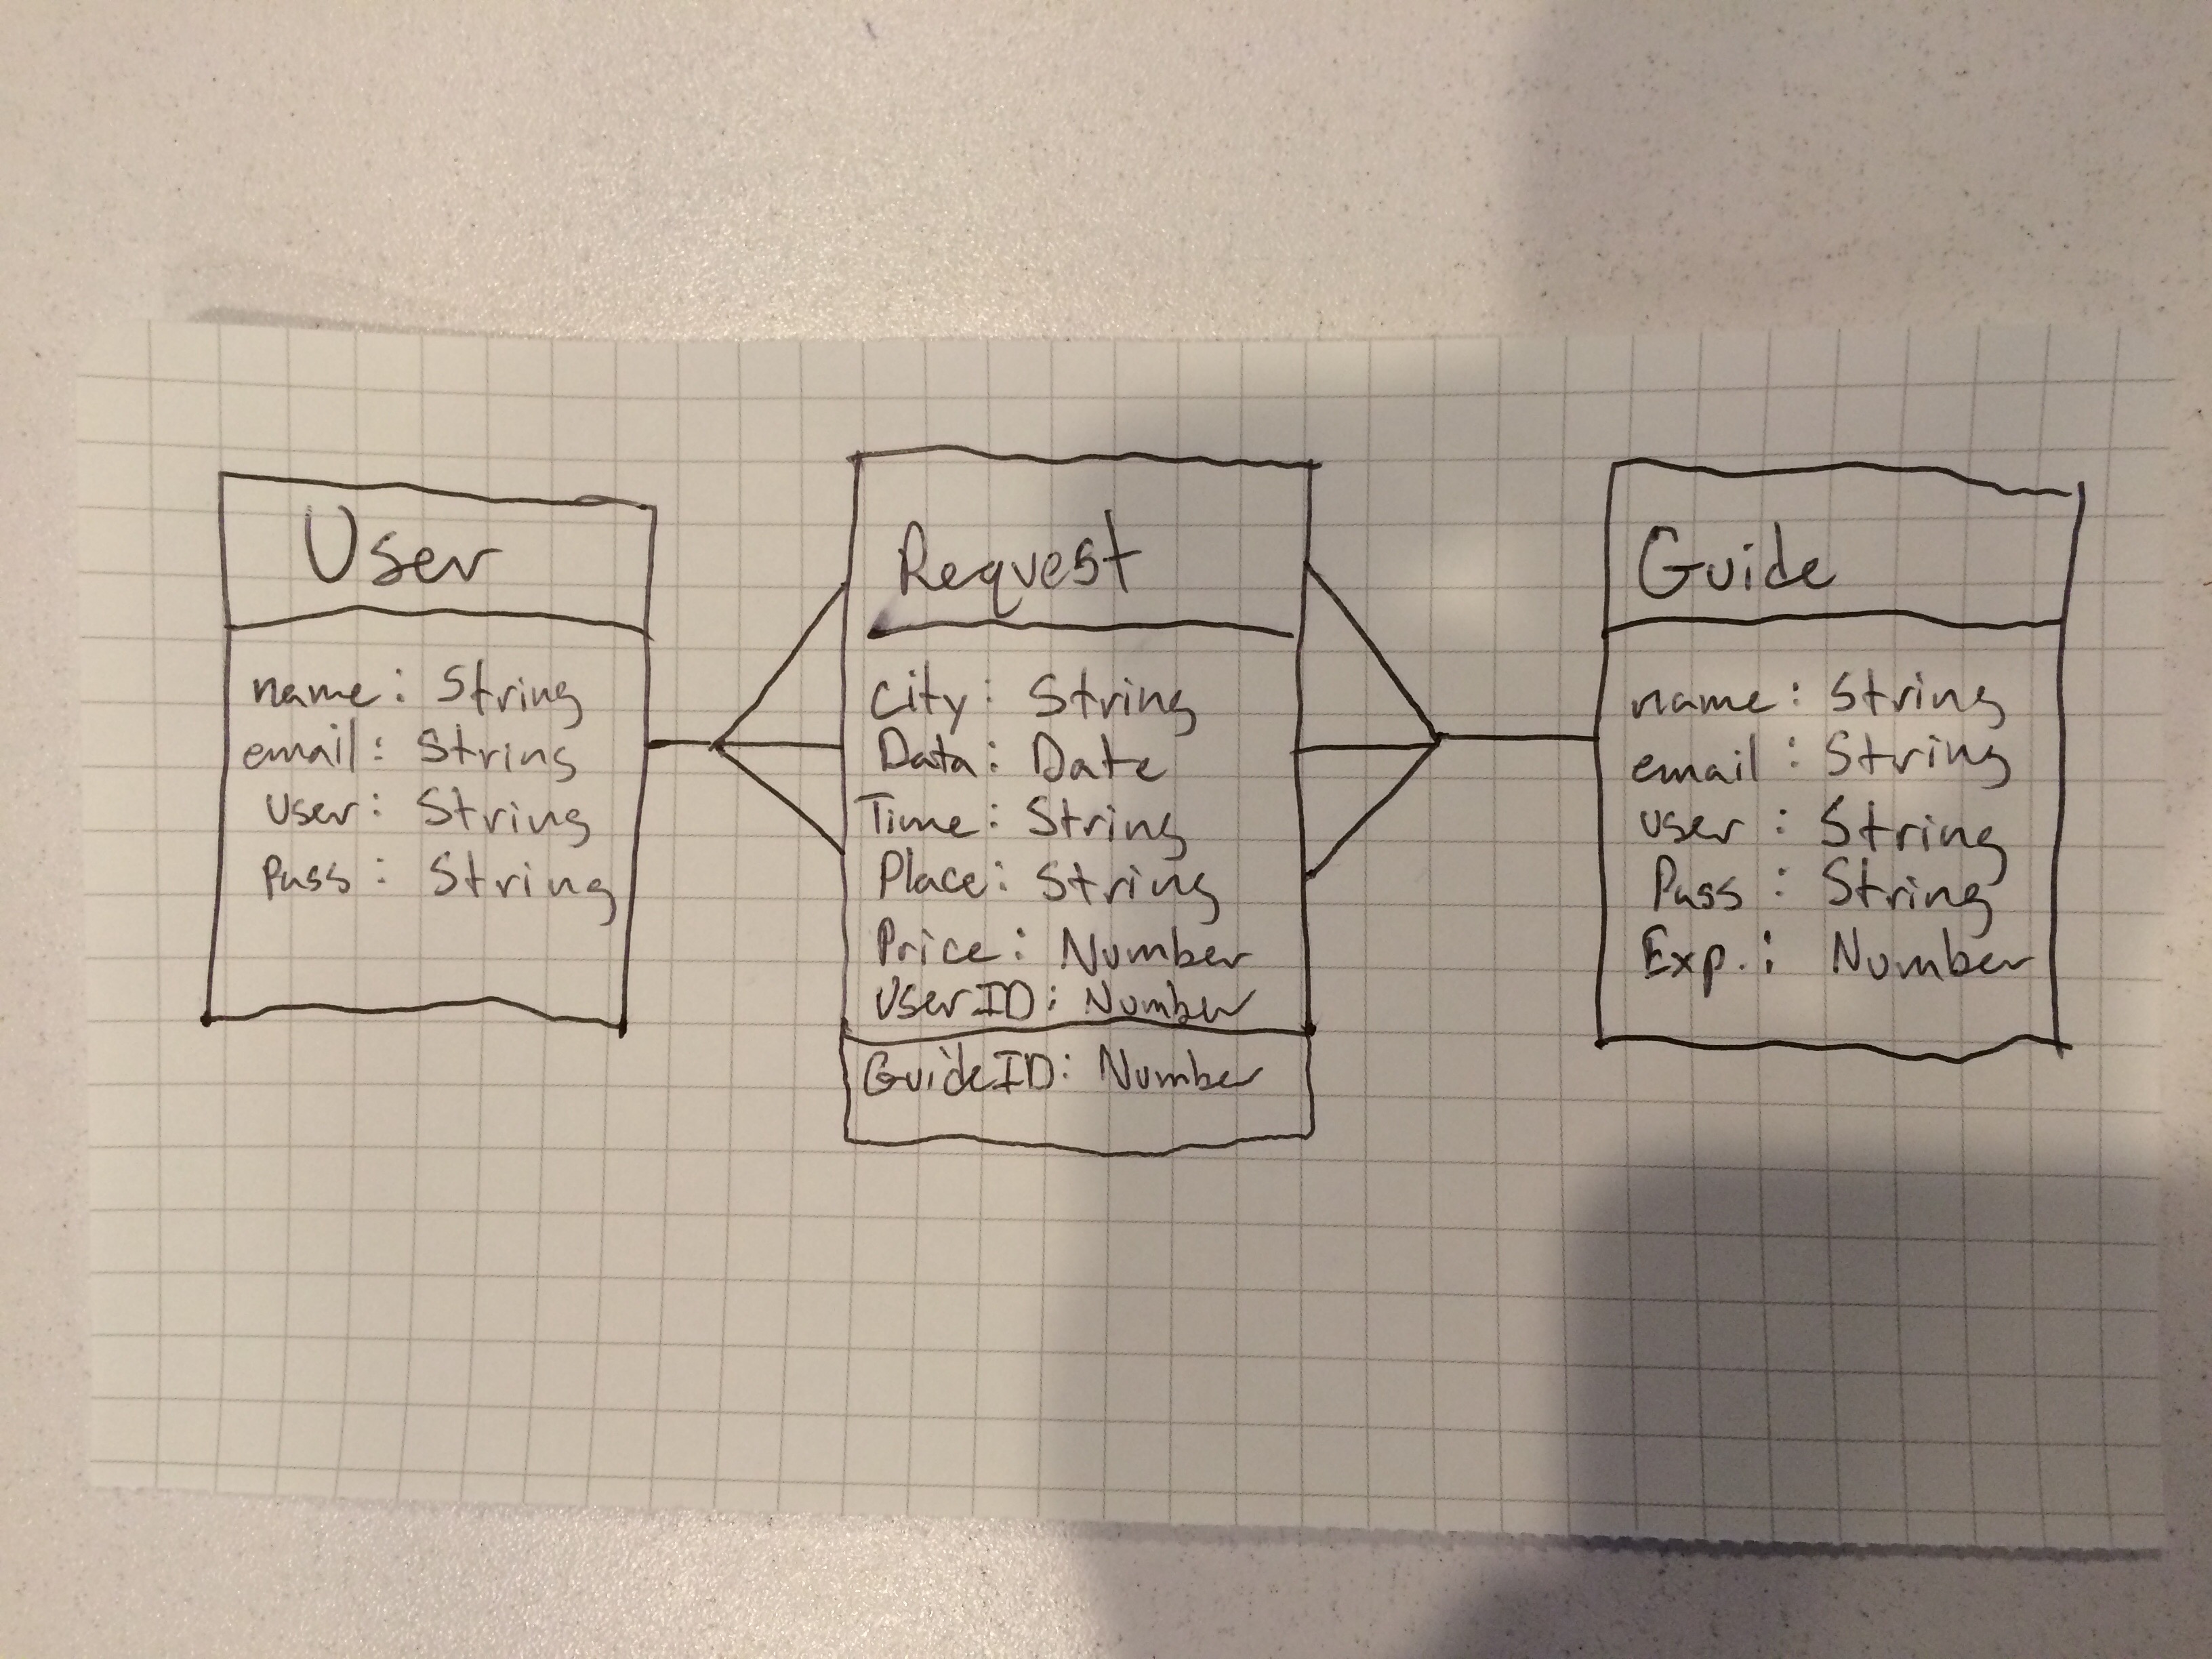 User
name: String
email: String
user: String
Pass: String
Request
City: String
Data: Date
Time: String
Place: String
Price: Number
UserID: Number
GuideID: Number
Guide
name: String
email: String
user: String
Pass: String
Exp.: Number